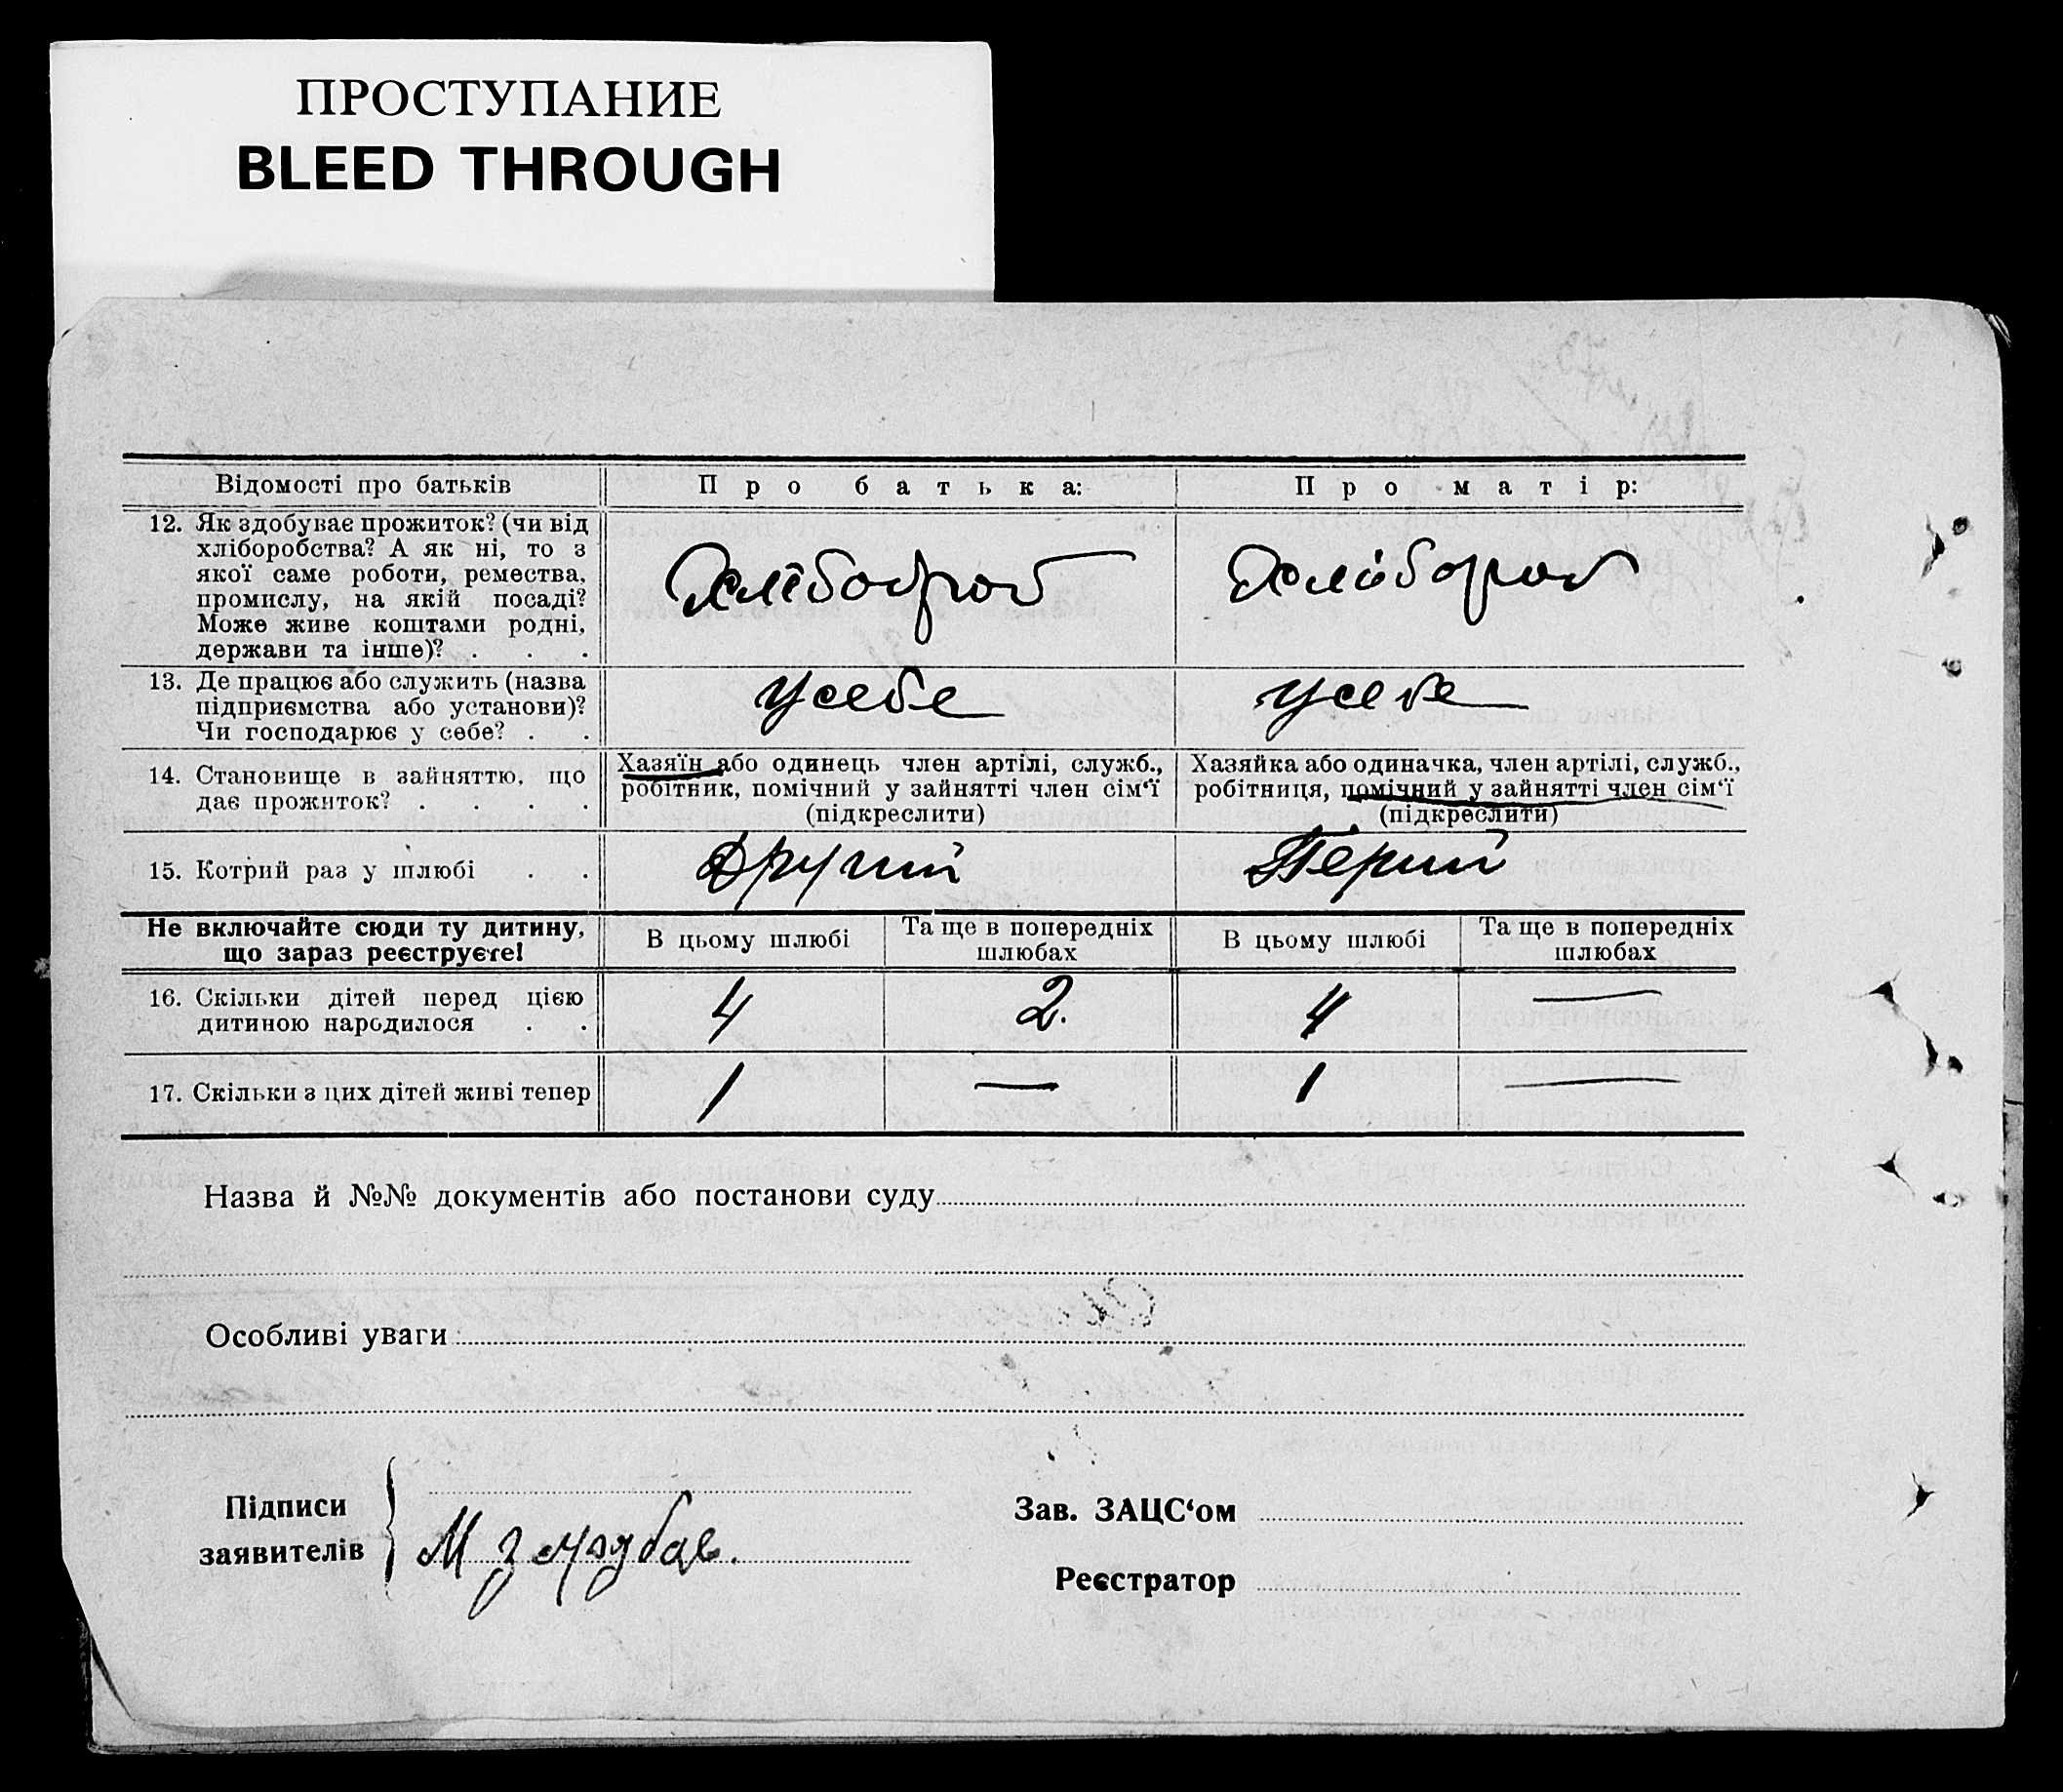 ПРОСТУПАНИЕ
BLEED THROUGH
Відомості про батьків
Про батька:
Про матір:
12. Як здобуває прожиток? (чи від
хліборобства? А як ні, то з
якої саме роботи, ремества,
промислу, на якій посаді?
Може живе коштами родні,
держави та інше)? . . .
Хлібороб
Хлібороб
13. Де працює або служить (назва
підприємства або установи)?
Чи господарює у себе? . .
Усебе
Усебе
14. Становище в зайняттю, що
дає прожиток? . . . .
Хазяїн або одинець член артілі, служб.,
робітник, помічний у зайнятті член сім‘ї
(підкреслити)
Хазяйка або одиначка, член артілі, служб.,
робітниця, помічний у зайнятті член сім‘ї
(підкреслити)
15. Котрий раз у шлюбі . .
Другий
Перший
Не включайте сюди ту дитину,
що зараз реєструєте!
В цьому шлюбі
Та ще в попередніх
шлюбах
В цьому шлюбі
Та ще в попередніх
шлюбах
16. Скільки дітей перед цією
дитиною народилося . .
4
2.
4
—
17. Скільки з цих дітей живі тепер
1
—
1
—
Назва й №№ документів або постанови суду
Особливі уваги
Підписи
заявителів
М
Зав. ЗАЦС‘ом
Реєстратор